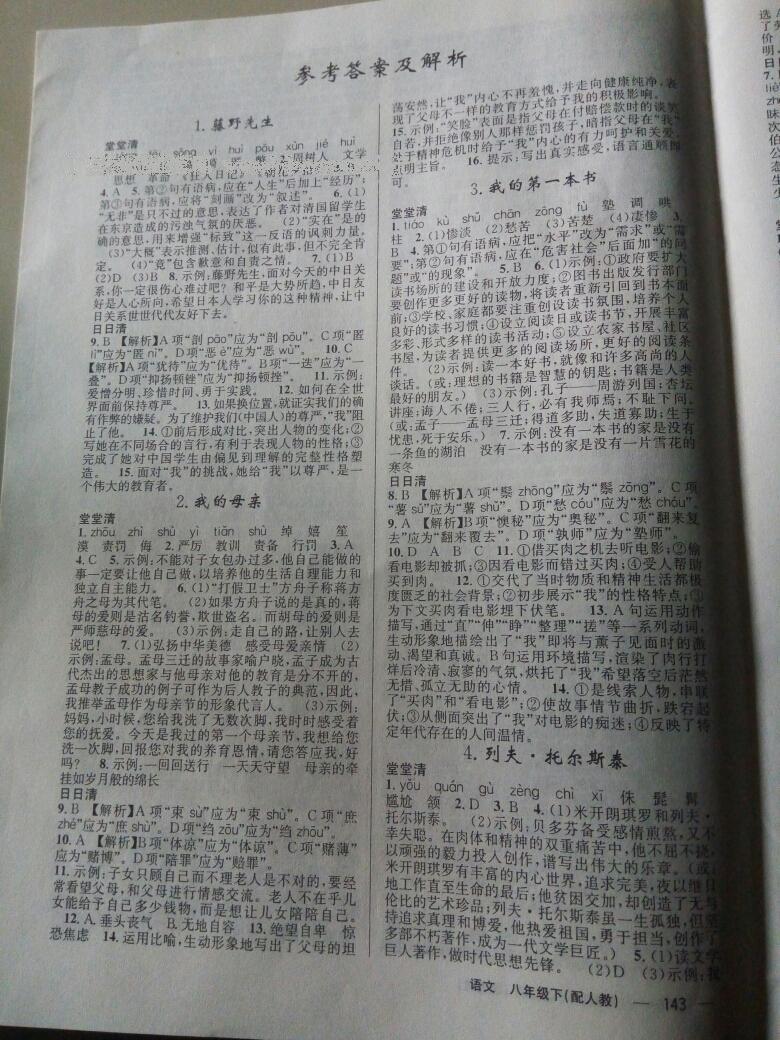 参考答案及解析
1. 藤野先生
堂堂清
思想 革命 《狂人日记》
4. A 5. 第②句有语病,应在“人生”后加上“经历”;
第③句有语病,应将“刻画”改为“叙述”。 6. (1)
“无非”是只不过的意思,表达了作者对清国留学生
在东京造成的污浊气氛的厌恶。 (2)“实在”是的
确的意思,用来增强“标致”这一反语的讽刺力量。
(3)“大概”表示推测、估计;似有此事,但不完全肯
定。 (4)“竟”包含歉意和自责之情。 7. (1)B
(2)D (3)B 8. 示例:藤野先生,面对今天的中日关
系,你一定很伤心难过吧?和平是大势所趋,中日友
好是人心所向,希望日本人学习你的这种精神,让中
日关系世世代代友好下去。
日日清
9. B 【解析】A项“剖pāo”应为“剖pōu”。C项“匿
lì”应为“匿nì”。D项“恶è”应为“恶wù”。 10. C
【解析】A项“犹待”应为“优待”。B项“一迭”应为“一
叠”。D项“抑扬顿锉”应为“抑扬顿挫”。 11. 示例:
爱憎分明,珍惜时间,勇于实践。 12. 如何在全世
界面前保持尊严。 13. 如果换位置,就证实我们的确
有作弊的嫌疑。为了维护我们(中国人)的尊严,“我”阻
止了他。 14. ①前后形成对比,突出人物的变化;②
写她在不同场合的言行,有利于表现人物的性格;③
完成了她对中国学生由偏见到理解的完整性格塑
造。 15. 面对“我”的挑战,她给“我”以尊严,是一
个伟大的教育者。
2. 我的母亲
堂堂清
1. zhōu zhì shù yì tiān shù 绰 嬉 笙
漠 责罚 侮 2. 严厉 教训 责备 行罚 3. A
4. C 5. 示例:不能对子女包办过多,他自己能做的
事一定要让他自己做,以培养他的生活自理能力和
独立自主能力。 6. (1)“打假卫士”方舟子称蒋方
舟之母为其代笔。 (2)如果方舟子说的是真的,蒋
母的爱则是沽名钓誉,欺世盗名。而胡母的爱则是
严师慈母的爱。 (3)示例:走自己的路,让别人去
说吧! 7. (1)弘扬中华美德 感受母爱亲情 (2)
示例:孟母。孟母三迁的故事家喻户晓,孟子成为古
代杰出的思想家与他母亲对他的教育是分不开的,
孟母教子成功的例子可作为后人教子的典范,因此,
我推举孟母作为母亲节的形象代言人。 (3)示例:
妈妈,小时候,您给我洗了无数次脚,我时时感受着
您的抚爱。今天是我过的第一个母亲节,我想给您
洗一次脚,回报您对我的养育恩情,请您答应我,好
吗? 8. 示例:一回回送行 一天天守望 母亲的牵
挂如岁月般的绵长
日日清
9. B 【解析】A项“束sù”应为“束shù”。C项“庶
zhè”应为“庶shù”。D项“绉zōu”应为“绉zhōu”。
10. A 【解析】B项“体凉”应为“体谅”。C项“赌薄”
应为“赌博”。D项“陪罪”应为“赔罪”。
11. 示例:子女只顾自己而不理老人是不对的,要经
常看望父母,和父母进行情感交流。老人不在乎儿
女能给予自己多少钱物,而是想让儿女陪陪自己。
12. A. 垂头丧气 B. 无地自容 13. 绝望自卑 惊
恐焦虑 14. 运用比喻,生动形象地写出了父母的坦
荡安然,让“我”内心不再羞愧,并走向健康纯净,表
现了父母不一样的教育方式给予我的积极影响。
15. 示例:“笑脸”表面是指父母在付赔偿款时的谈笑
自若,并拒绝像别人那样惩罚孩子,暗指父母在“我”
处于精神危机时给予“我”内心的有力呵护和关爱。
点明主旨。 16. 提示:写出真实感受,语言通顺即
可。
3. 我的第一本书
堂堂清
1. liáo kù shǔ chān zōng fù 塾 调 哄
柱 2. (1)惨淡 (2)愁苦 (3)苦楚 (4)凄惨 3.
B 4. 第①句有语病,应把“水平”改为“需求”或“需
要”;第②句有语病,应在“危害社会”后面加“的问
题”或“的现象”。 5. B 6. (1)示例:①政府要扩大
读书场所的建设和开放力度;②图书出版发行部门
要创作更多更好的读物,将读者重新引回到书本面
前;③学校、家庭都要注重创设读书氛围,培养个人
良好的读书习惯;④设立阅读日或读书节,开展丰富
多彩、形式多样的读书活动;⑤设立农家书屋、社区
书屋,为读者提供更多的阅读场所,更好的阅读条
件。 (2)示例:读一本好书,就像和许多高尚的人
谈话。(或:理想的书籍是智慧的钥匙;书籍是人类
最好的朋友。) (3)示例:孔子——周游列国;杏坛
讲座;诲人不倦;三人行,必有我师焉;不耻下问。
(或:孟子——孟母三迁;得道多助,失道寡助;生于
忧患,死于安乐。) 7. 示例:没有一本书的家是没有
一条鱼的湖泊 没有一本书的家是没有一片雪花的
寒冬
日日清
8. B 【解析】A项“鬃zhōng”应为“鬃zōng”。C项
“薯sú”应为“薯shǔ”。D项“愁cóu”应为“愁chóu”。
9. A 【解析】B项“懊秘”应为“奥秘”。C项“翻来复
去”应为“翻来覆去”。D项“孰师”应为“塾师”。
10. D A B C 11. ①借买肉之机去听电影;②偷
看电影却被抓;③因看电影而错过买肉;④受人帮助
买到肉。 12. ①交代了当时物质和精神生活都极
度匮乏的社会背景;②初步展示“我”的性格特点;③
为下文买肉看电影埋下伏笔。 13. A句运用动作
描写,通过“直”“伸”“睁”“整理”“搓”等一系列动词,
生动形象地描绘出了“我”即将与薰子见面时的激
动、渴望和真诚。B句运用环境描写,渲染了肉行打
烊后冷清、寂寥的气氛,烘托了“我”希望落空后茫然
无措、孤立无助的心情。 14. ①是线索人物,串联
了“买肉”和“看电影”;②使故事情节曲折,跌宕起
伏;③从侧面突出了“我”对电影的痴迷;④反映了特
定年代存在的人间温情。
4. 列夫·托尔斯泰
堂堂清
1. yǒu quán gù zèng chì xī 侏 髭 髯
尴尬 颔 2. D 3. B 4. (1)米开朗琪罗和列夫·
托尔斯泰。 (2)示例:贝多芬备受感情煎熬,又不
幸失聪。在肉体和精神的双重痛苦中,他不屈不挠,
以顽强的毅力投入创作,谱写出伟大的乐章。(或:
米开朗琪罗有丰富的内心世界,追求完美,夜以继日
地工作直至生命的最后;他贫困交加,却创造了无与
伦比的艺术珍品;列夫·托尔斯泰虽一生孤独,但坚
持追求真理和博爱,他热爱祖国,勇于担当,创作了
多部不朽著作,成为一代文学巨匠。) 5. (1)读文学
巨人著作,做时代思想先锋。 (2)D (3)示例:我
语文 八年级下(配人教) — 143 —